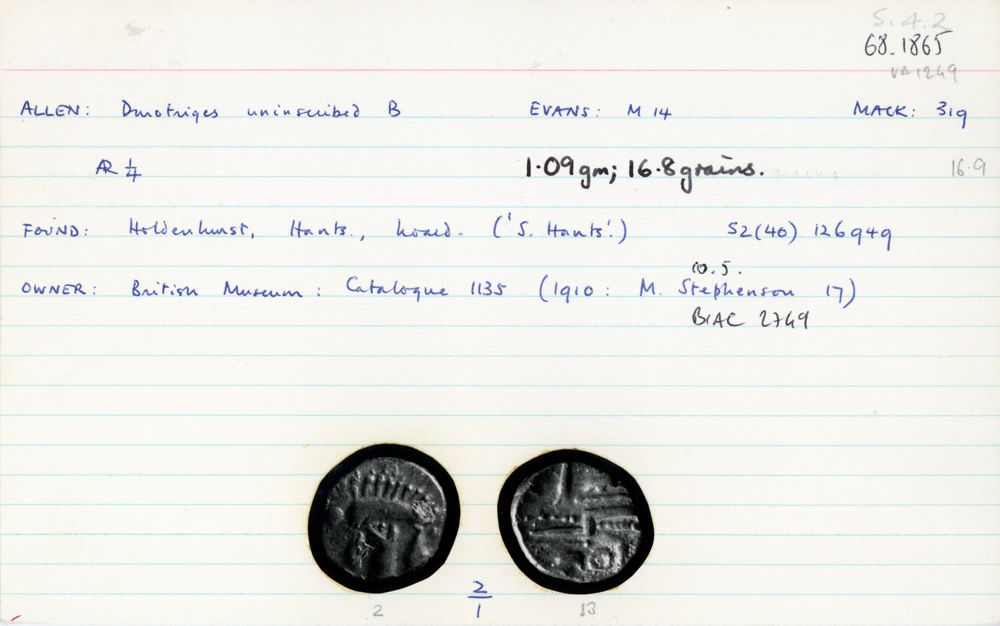 S. 4. 2
68.1865
VA 1249
ALLEN: Durotriges uninscribed B EVANS: M 14 MACK: 319
AR 1/4 1.09gm; 16.8grains. 16.9
FOUND: Holdenhurst, Hants., hoard. ('S. Hants'.) S2(40) 126949
10.5.
OWNER: British Museum: Catalogue 1135 (1910: M. Stephenson 17)
BIAC 2749
2/1
2 13